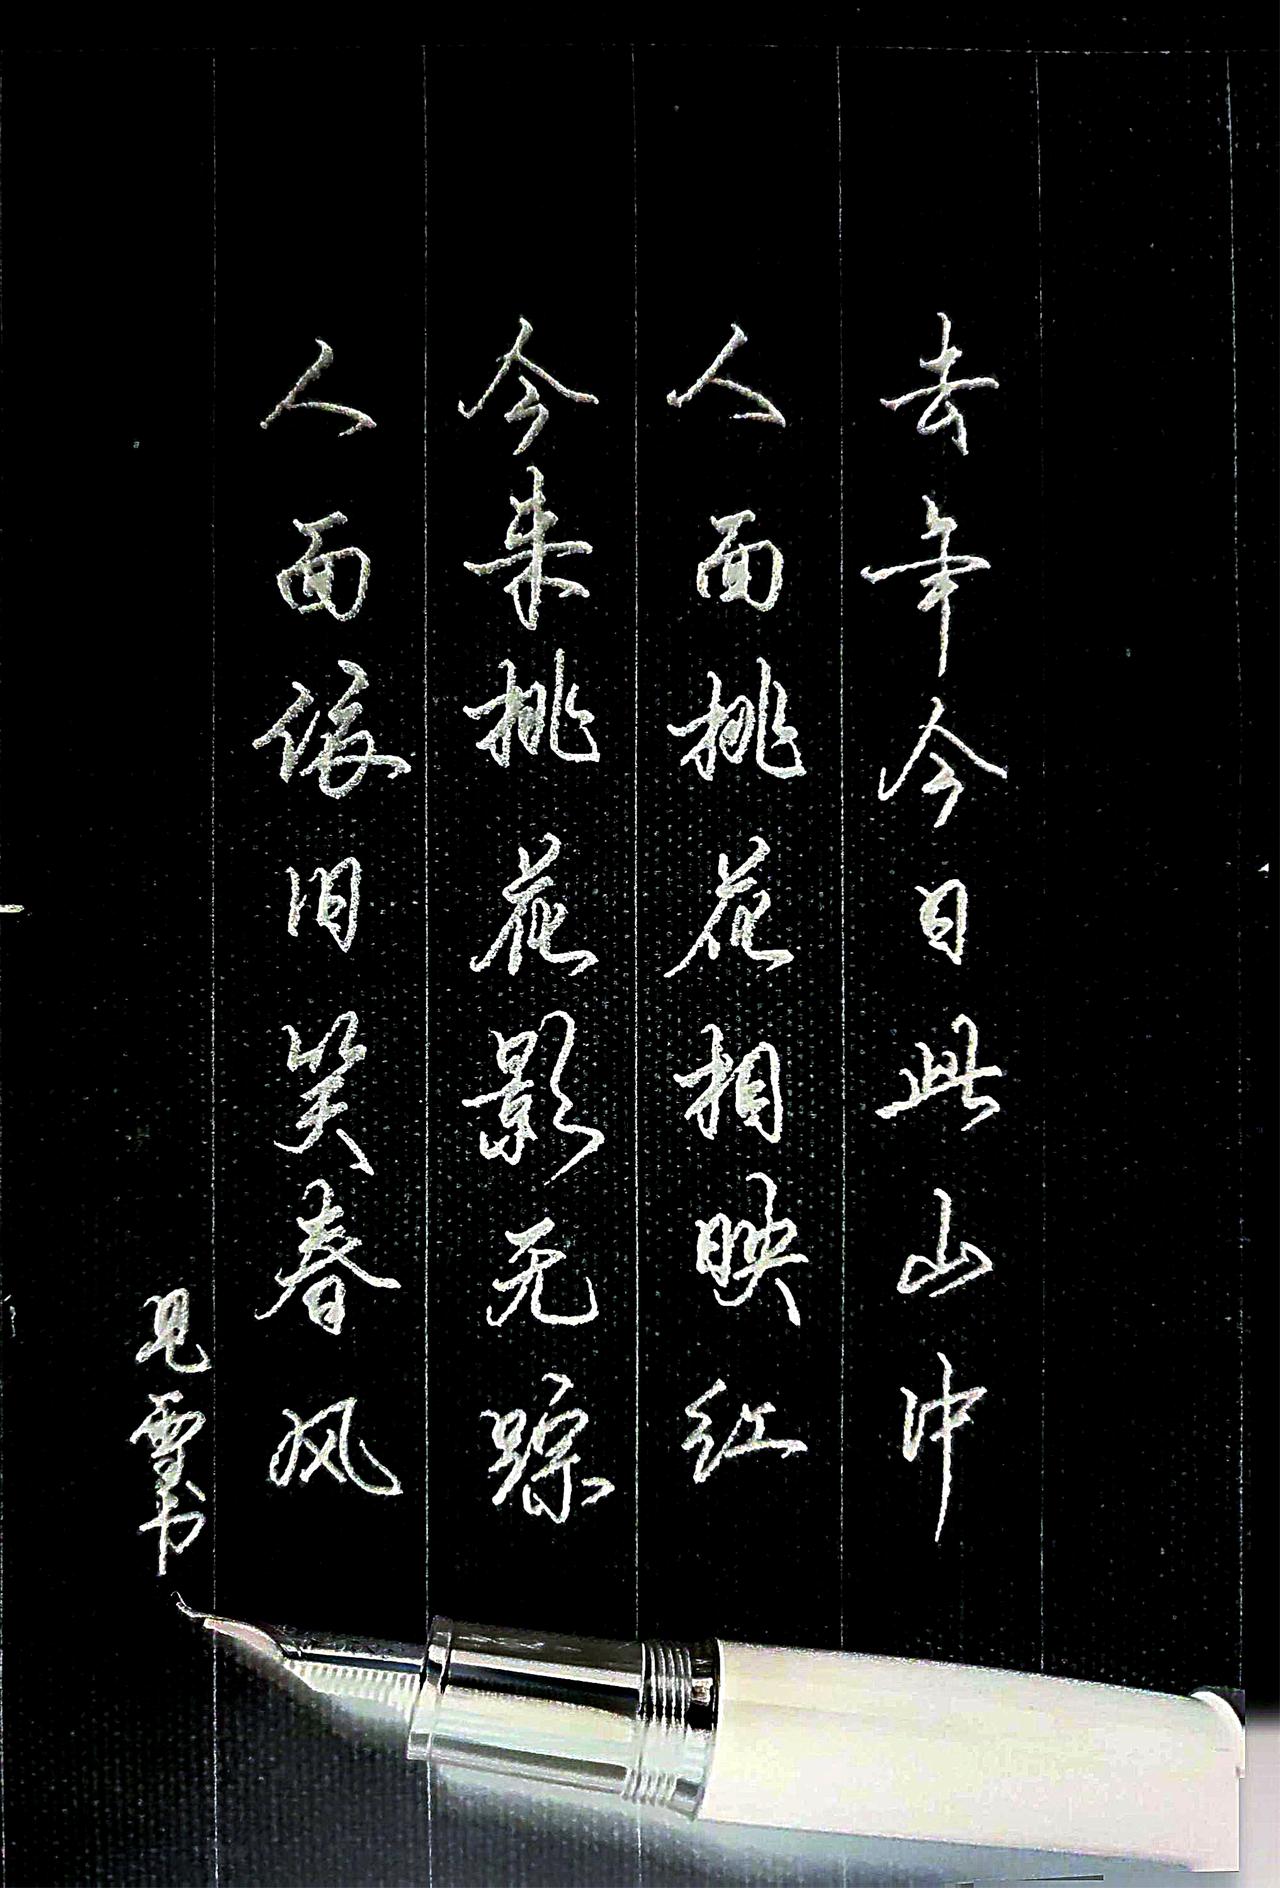 去年今日此山中
人面桃花相映红
今来桃花影无踪
人面依旧笑春风
见雪书